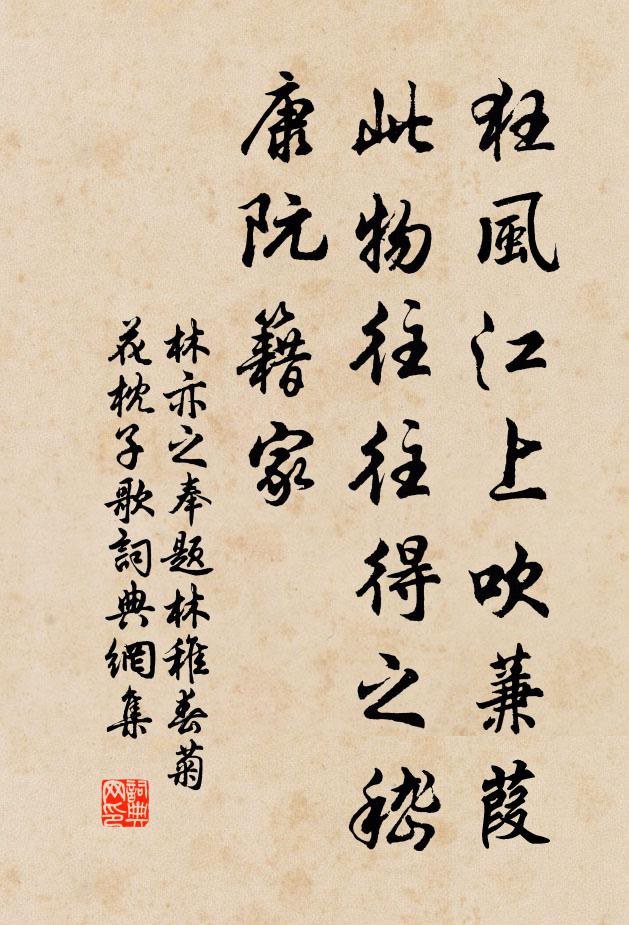 狂風江上吹蒹葭
此物往往得之嵇
康阮籍家
林亦之奉題林稚春菊
花枕子歌詞典網集
詞典
网印